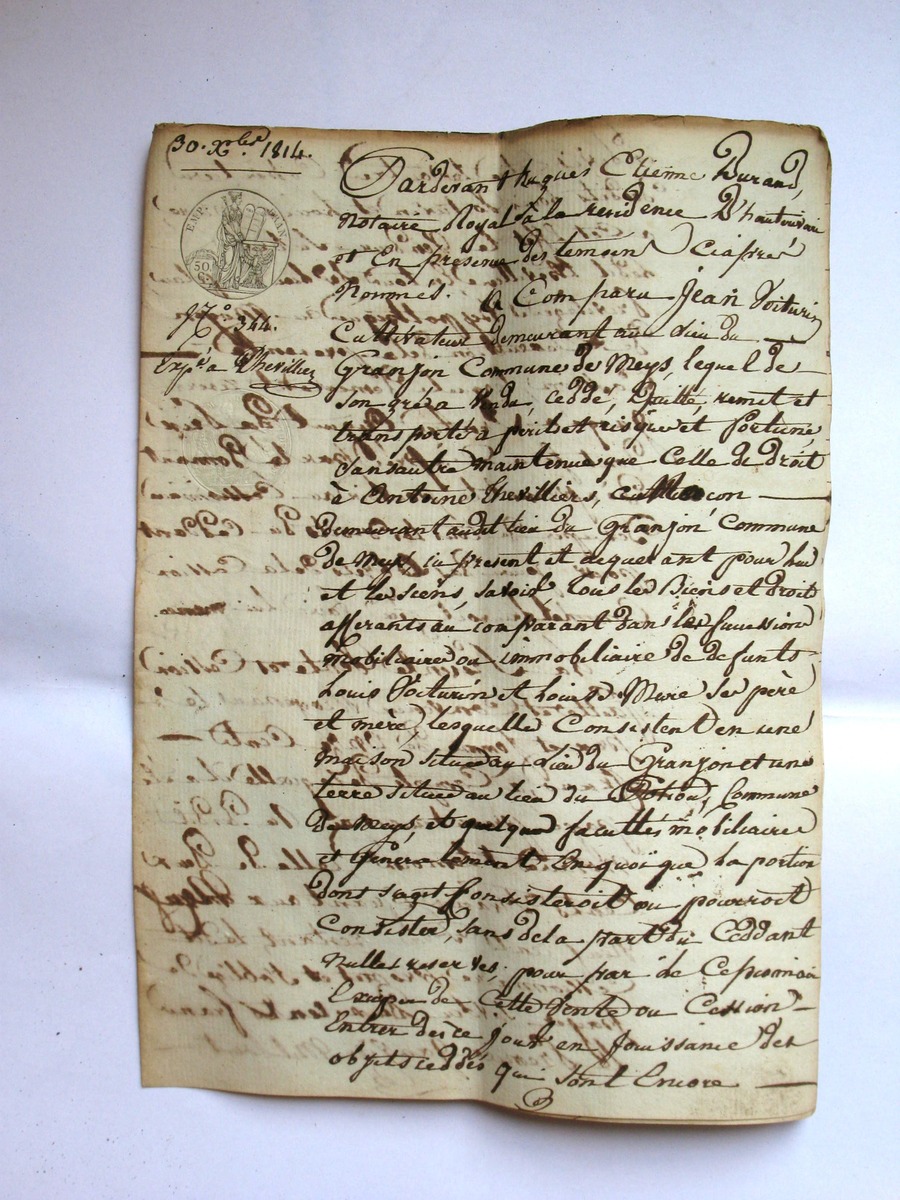 30. Xbre 1814.
EMP. FRAN.
50 C.
No. 344.
Expée a Thevillier
Pardevant hugues Etienne Durand,
Notaire Royal à la residence D'hauterivoir
et En presence des temoins Ciaprés
Nommés. a Comparu Jean Voiturin
Cultivateur demeurant au Lieu du
Granjon Commune de Meys, lequel de
son gré a Vendu, ceddé, quitté, remit et
transporté a peril et risque et fortune,
sans autre maintenue que Celle de droit
à Antoine thevilliers,
demeurant audit lieu du Granjon Commune
de meys, ici present et acquerant pour lui
et les siens, savoir, tous les Biens et droit
afferants au comparant dans les succession
mobiliaire ou immobiliaire de defunts
Louis Voiturin et Louise Mure ses père
et mere, lesquelle Consistent en une
maison située au Lieu du Granjon et une
terre située au lieu du Commune
De meys, et quelque facultés mobiliaire
et Généralement En quoi que La portion
dont s'agit Consisteroit ou pourroit
Consister, sans de la part du Ceddant
nulles reserves. pour par le
de Cette Vente ou Cession
Entrer dès ce jour en Jouissance des
objets ceddés qui sont Encore